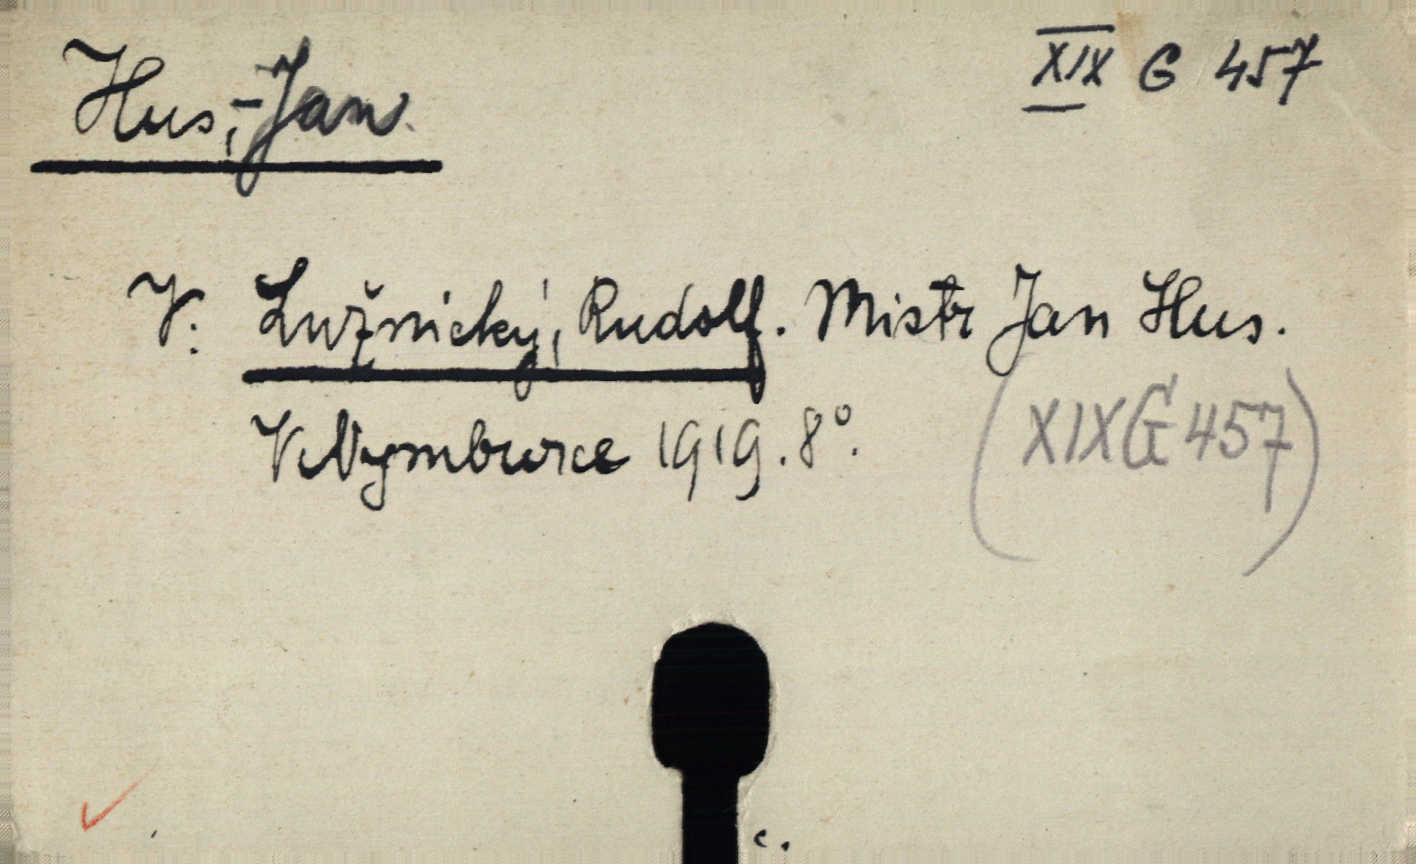 Hus,-Jan.
XIX G 457
V. Lužnický, Rudolf. Mistr Jan Hus.
V Nymburce 1919. 8°.
(XIX G 457)
c.